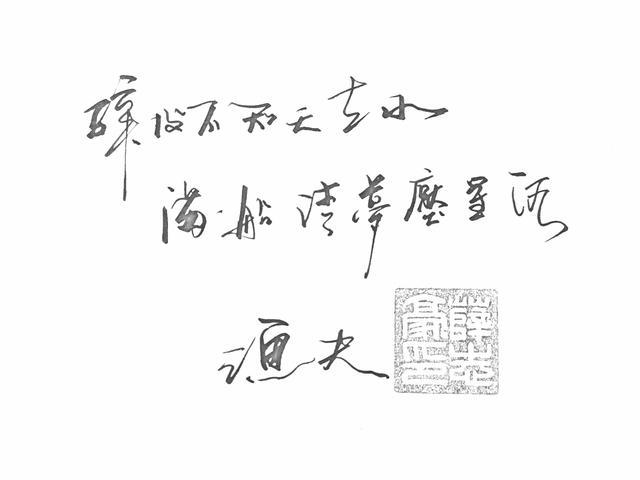 醉後不知天在水
滿船清夢壓星河
漁夫